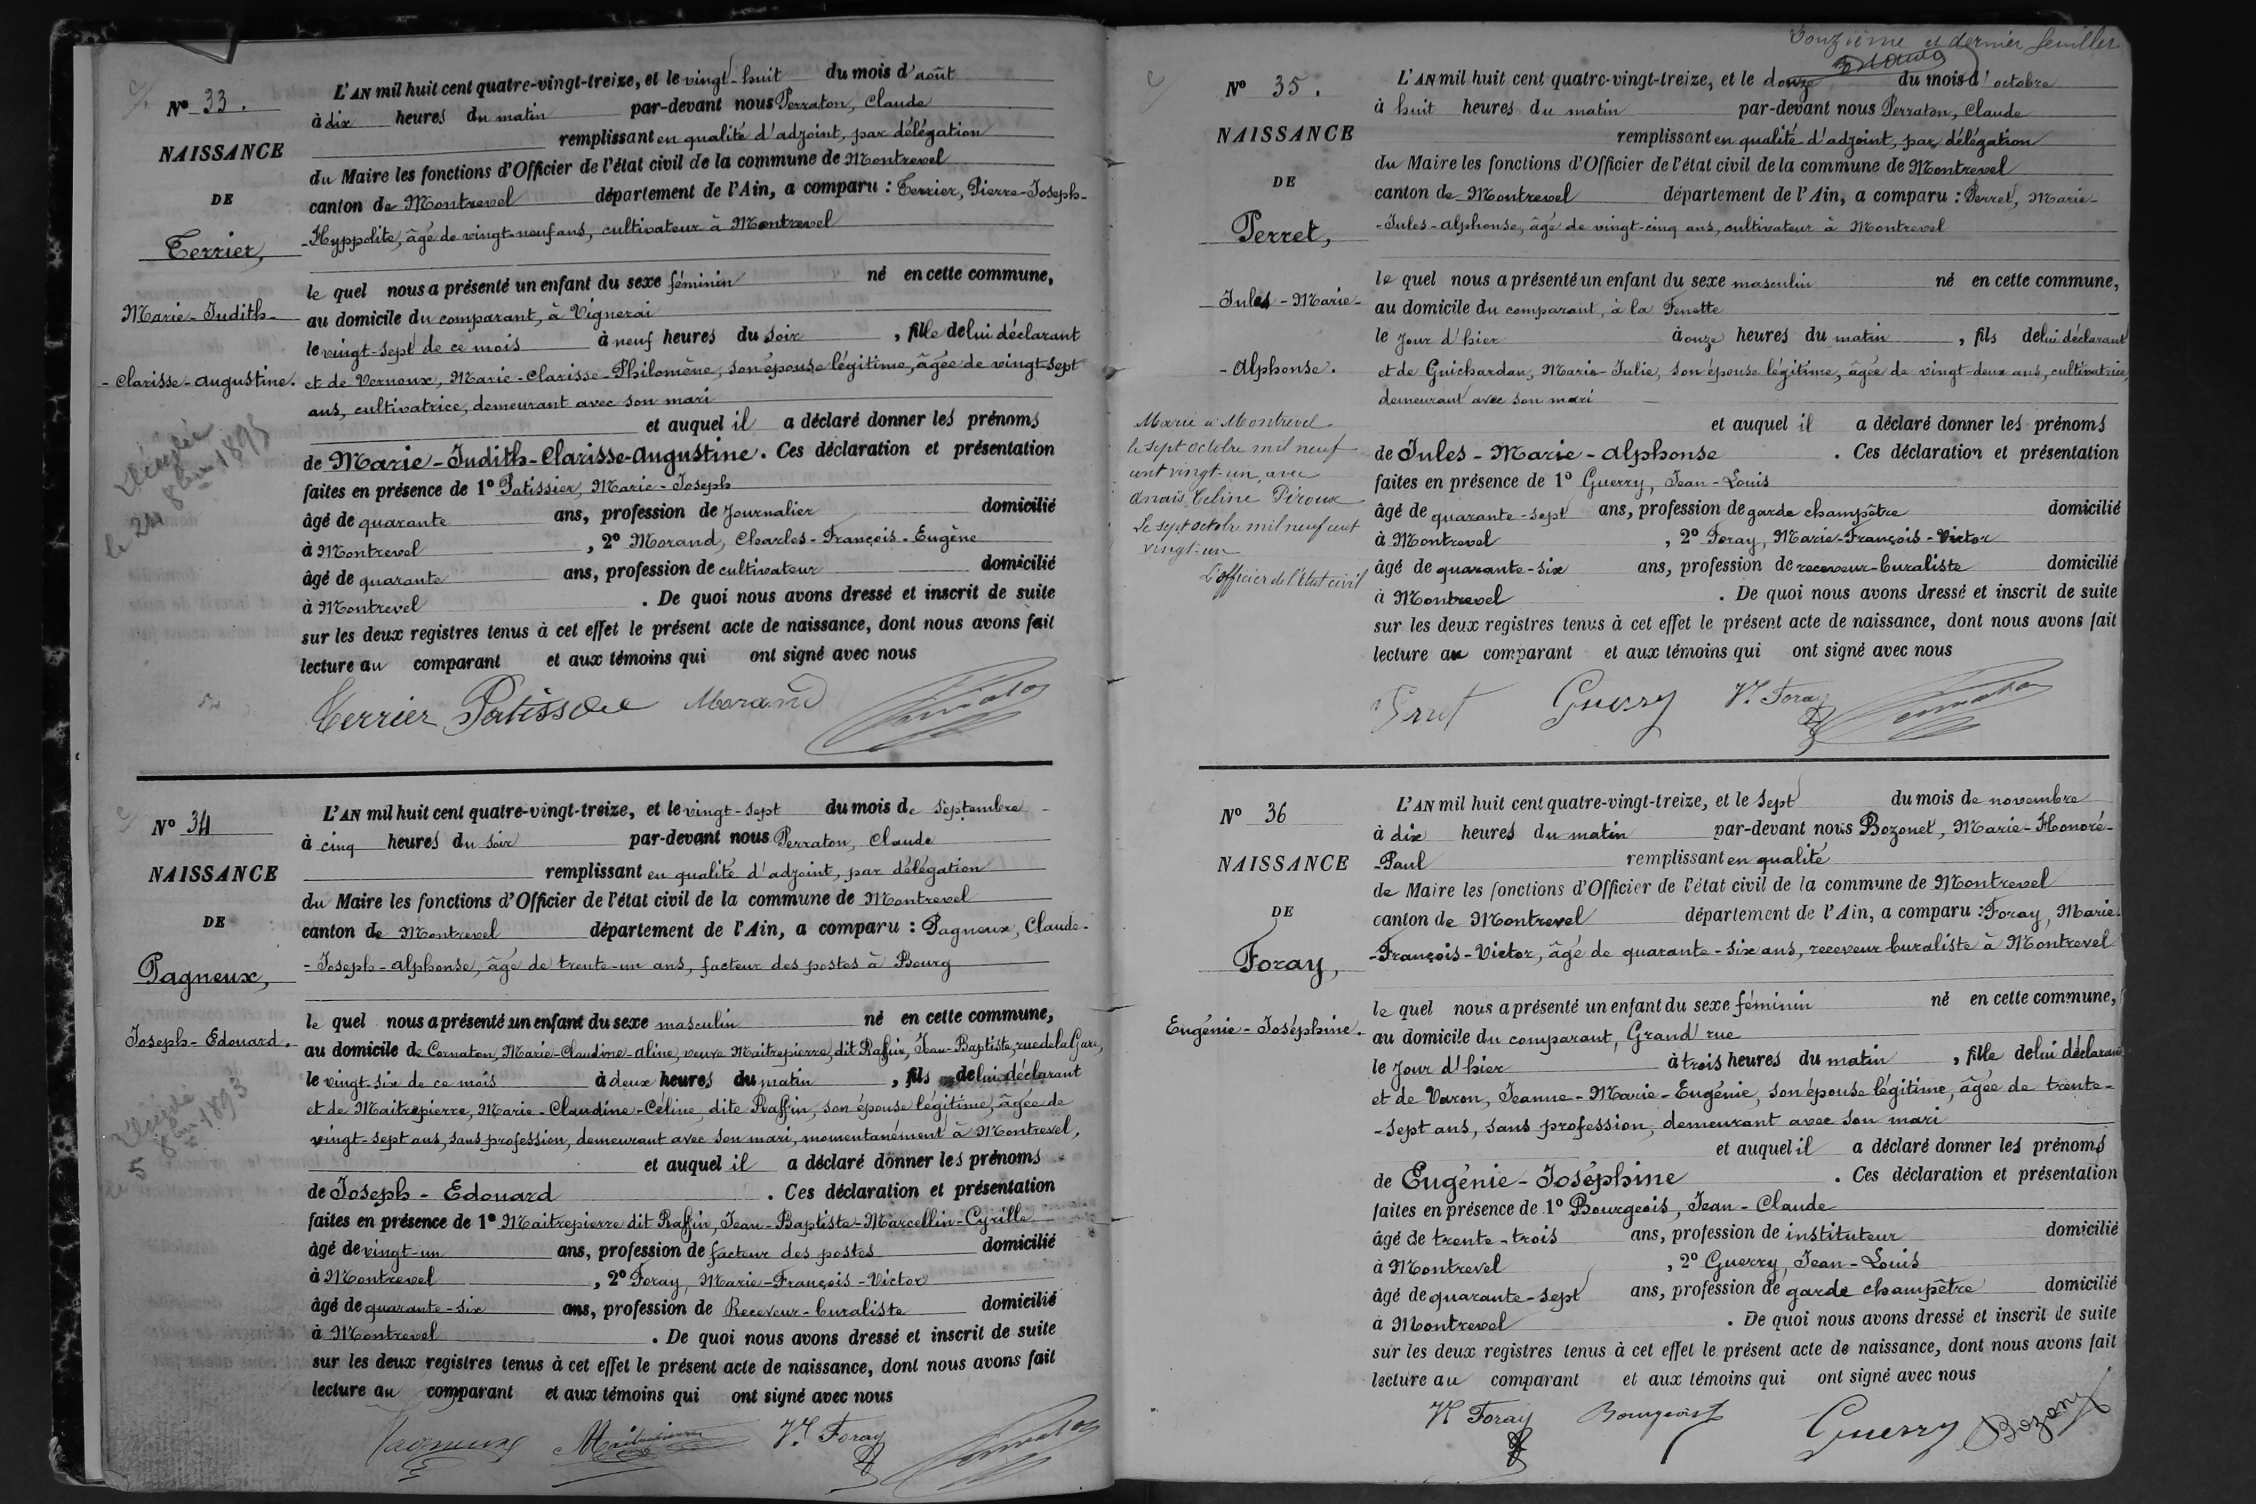 L'AN mil huit cent quatre-vingt-treize, et le vingt-huit du mois d'août
N° 33.
à dix heures du matin par-devant nous Perraton, Claude
remplissant en qualité d'adjoint, par délégation
NAISSANCE
du Maire les fonctions d'Officier de l'état civil de la commune de Montrevel
DE
canton de Montrevel département de l'Ain, a comparu : Terrier, Pierre-Joseph-
Terrier,
-Hyppolite, âgé de vingt-neuf ans, cultivateur à Montrevel
le quel nous a présenté un enfant du sexe féminin né en cette commune,
Marie-Judith-
au domicile du comparant, à Vignerai
le vingt-sept de ce mois à neuf heures du soir, fille de lui déclarant
-Clarisse-Augustine.
et de Vernoux, Marie-Clarisse-Philomène, son épouse légitime, âgée de vingt-sept
ans, cultivatrice, demeurant avec son mari
et auquel il a déclaré donner les prénoms
de Marie-Judith-Clarisse-Augustine. Ces déclaration et présentation
faites en présence de 1° Patissier, Marie-Joseph
âgé de quarante ans, profession de journalier domicilié
à Montrevel, 2° Morand, Charles-François-Eugène
âgé de quarante ans, profession de cultivateur domicilié
à Montrevel. De quoi nous avons dressé et inscrit de suite
sur les deux registres tenus à cet effet le présent acte de naissance, dont nous avons fait
lecture au comparant et aux témoins qui ont signé avec nous
Décédée
le 24 8bre 1893
Terrier Patissier Morand Perraton
L'AN mil huit cent quatre-vingt-treize, et le vingt-sept du mois de Septembre
N° 34
à cinq heures du soir par-devant nous Perraton, Claude
remplissant en qualité d'adjoint, par délégation
NAISSANCE
du Maire les fonctions d'Officier de l'état civil de la commune de Montrevel
DE
canton de Montrevel département de l'Ain, a comparu : Pagneux, Claude-
Pagneux,
-Joseph-Alphonse, âgé de trente-un ans, facteur des postes à Bourg
le quel nous a présenté un enfant du sexe masculin né en cette commune,
Joseph-Edouard.
au domicile de Cornaton, Marie-Claudine-Aline, veuve Maitrepierre, dit Raffin, Jean-Baptiste, rue de la Gare,
le vingt-six de ce mois à deux heures du matin, fils de lui déclarant
et de Maitrepierre, Marie-Claudine-Céline, dite Raffin, son épouse légitime, âgée de
vingt-sept ans, sans profession, demeurant avec son mari, momentanément à Montrevel,
et auquel il a déclaré donner les prénoms
de Joseph-Edouard. Ces déclaration et présentation
faites en présence de 1° Maitrepierre dit Raffin, Jean-Baptiste-Marcellin-Cyrille
âgé de vingt-un ans, profession de facteur des postes domicilié
à Montrevel, 2° Foray, Marie-François-Victor
âgé de quarante-six ans, profession de Receveur-buraliste domicilié
à Montrevel. De quoi nous avons dressé et inscrit de suite
sur les deux registres tenus à cet effet le présent acte de naissance, dont nous avons fait
lecture au comparant et aux témoins qui ont signé avec nous
Décédé
le 5 8bre 1893
Pagneux Maitrepierre Vr. Foray Perraton
Douzième et dernier feuillet
L'AN mil huit cent quatre-vingt-treize, et le douze du mois d'octobre
N° 35.
à huit heures du matin par-devant nous Perraton, Claude
NAISSANCE
remplissant en qualité d'adjoint, par délégation
du Maire les fonctions d'Officier de l'état civil de la commune de Montrevel
DE
canton de Montrevel département de l'Ain, a comparu : Perret, Marie-
Perret,
-Jules-Alphonse, âgé de vingt-cinq ans, cultivateur à Montrevel
le quel nous a présenté un enfant du sexe masculin né en cette commune,
Jules-Marie-
au domicile du comparant, à la Fenette
le jour d'hier à onze heures du matin, fils de lui déclarant
-Alphonse.
et de Guichardan, Marie-Julie, son épouse légitime, âgée de vingt-deux ans, cultivatrice,
demeurant avec son mari
et auquel il a déclaré donner les prénoms
de Jules-Marie-Alphonse. Ces déclaration et présentation
faites en présence de 1° Guerry, Jean-Louis
âgé de quarante-sept ans, profession de garde champêtre domicilié
à Montrevel, 2° Foray, Marie-François-Victor
âgé de quarante-six ans, profession de receveur-buraliste domicilié
à Montrevel. De quoi nous avons dressé et inscrit de suite
sur les deux registres tenus à cet effet le présent acte de naissance, dont nous avons fait
lecture au comparant et aux témoins qui ont signé avec nous
Marié à Montrevel
le sept octobre mil neuf
cent vingt-un, avec
Anaïs Celine Péroux
Le sept octobre mil neuf cent
vingt-un
L'officier de l'état civil
Perret Guerry Vr. Foray Perraton
L'AN mil huit cent quatre-vingt-treize, et le sept du mois de novembre
N° 36
à dix heures du matin par-devant nous Bozonet, Marie-Honoré-
NAISSANCE
-Paul remplissant en qualité
de Maire les fonctions d'Officier de l'état civil de la commune de Montrevel
DE
canton de Montrevel département de l'Ain, a comparu : Foray, Marie-
Foray,
-François-Victor, âgé de quarante-six ans, receveur buraliste à Montrevel
le quel nous a présenté un enfant du sexe féminin né en cette commune,
Eugénie-Joséphine.
au domicile du comparant, Grand'rue
le jour d'hier à trois heures du matin, fille de lui déclarant
et de Varon, Jeanne-Marie-Eugénie, son épouse légitime, âgée de trente-
-sept ans, sans profession, demeurant avec son mari
et auquel il a déclaré donner les prénoms
de Eugénie-Joséphine. Ces déclaration et présentation
faites en présence de 1° Bourgeois, Jean-Claude
âgé de trente-trois ans, profession de instituteur domicilié
à Montrevel, 2° Guerry, Jean-Louis
âgé de quarante-sept ans, profession de garde champêtre domicilié
à Montrevel. De quoi nous avons dressé et inscrit de suite
sur les deux registres tenus à cet effet le présent acte de naissance, dont nous avons fait
lecture au comparant et aux témoins qui ont signé avec nous
Vr Foray Bourgeois Guerry Bozonet